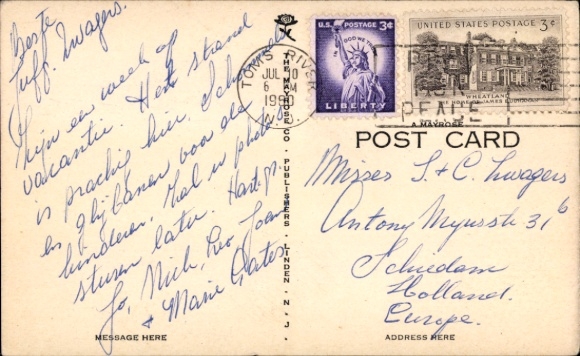 Beste
Juff. Zwagers.
Zijn een week op
vacantie. Het strand
is prachtig hier. Schommels
en glijbanen voor de
kinderen. Zal U photo
sturen later. Hart. gr.
Jo, Nick, Leo, Joan
& Marie Oates
MESSAGE HERE
THE MAYROSE CO. PUBLISHERS LINDEN N.J.
TOMS RIVER
JUL 10
6 PM
N.J.
U.S. POSTAGE 3¢
IN GOD WE TRUST
LIBERTY
UNITED STATES POSTAGE 3¢
WHEATLAND
HOME OF JAMES BUCHANAN
PRAY
FOR
PEACE
A MAYROSE
POST CARD
Misses S + C. Zwagers
Antony Muysstr 31b
Schiedam
Holland.
Europe.
ADDRESS HERE